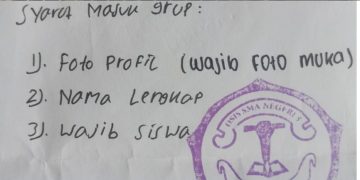 Syarat Masuk grup :
1). Foto Profil (Wajib FOTO MUKA)
2). Nama Lengkap
3). Wajib Siswa
OSIS SMA NEGERI 5